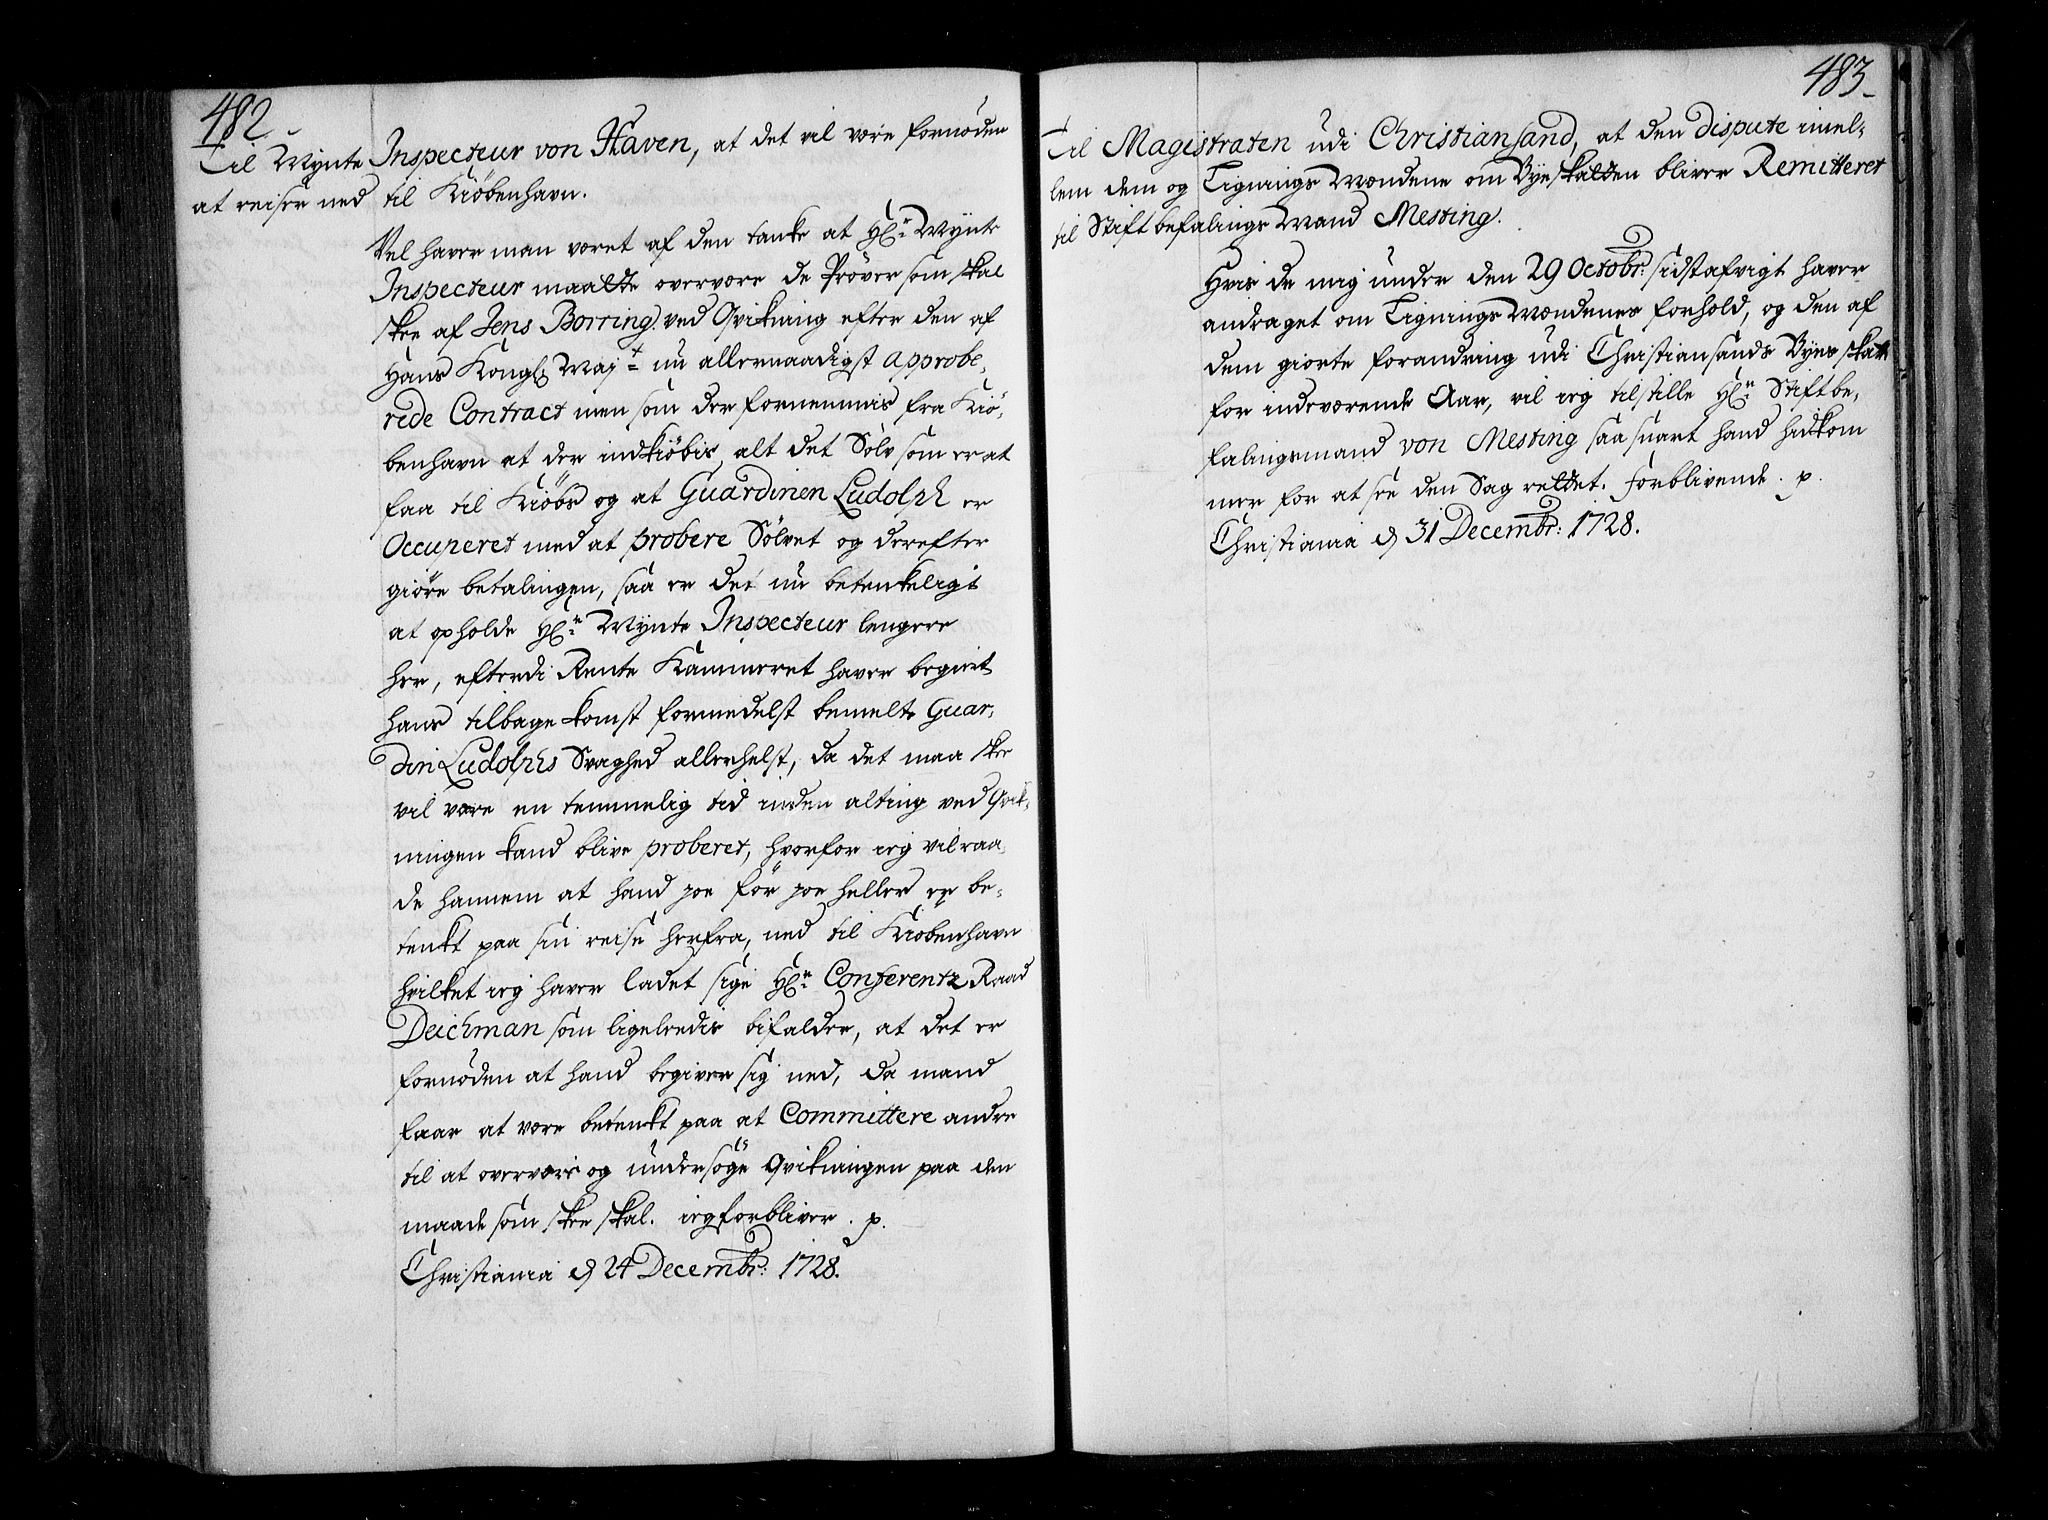 482.
Til Mynte Inspecteur von Haven, at det vil være fornøden
at reise ned til Kiøbenhavn.
Vel haver man været af den tanke at Hr. Mynte
Inspecteur maatte overvære de Prøver som skal
skee af Jens Borring ved Qvikning efter den af
Hans Kongl. Maj.t nu allernaadigst approbe,
rede Contract men som der fornemmis fra Kiø,
benhavn at der indkiøbis alt det Sølv som er at
faa til Kiøbs og at Guardinen Ludolph er
Occuperet med at probere Sølvet og derefter
giøre betalingen, saa er det nu betenkeligt
at opholde Hr. Mynte Inspecteur lengere
her, efterdi Rente Kammeret haver begiert
hans tilbage komst formedelst bemelte Guar,
din Ludolphs Svaghed allerhelst, da det maa skee
vil være en temmelig tid inden alting ved Qvik,
ningen kand blive proberet, hvorfor ieg vil raa,
de hannem at hand joe før joe heller er be,
tenkt paa sin reise herfra, ned til Kiøbenhavn
hvilket ieg haver ladet sige Hr. Conferentz Raad
Deichman som ligeledis bifalder, at det er
fornøden at hand begiver sig ned, da mand
faar at være betenkt paa at Committere andre
til at overvære og undersøge Qvikningen paa den
maade som skee skal. ieg forbliver. p.
Christiania d 24 Decembr: 1728.
483.
Til Magistraten udi Christiansand, at den dispute imel-
lem dem og Ligningsmændene om Byeskatten bliver Remitteret
til Stiftbefalings Mand Mesting.
Hvis de mig under den 29 Octobr: sidstafvigt haver
andraget om Ligningsmændenes forhold, og den af
dem giorte forandring udi Christiansands Byes skat
for indeværende Aar, vil ieg tilstille Hr. Stiftbe,
falingsmand von Mesting saa snart hand hidkom
mer for at see den Sag rettet. forblivende. p.
Christiania d 31 Decembr: 1728.